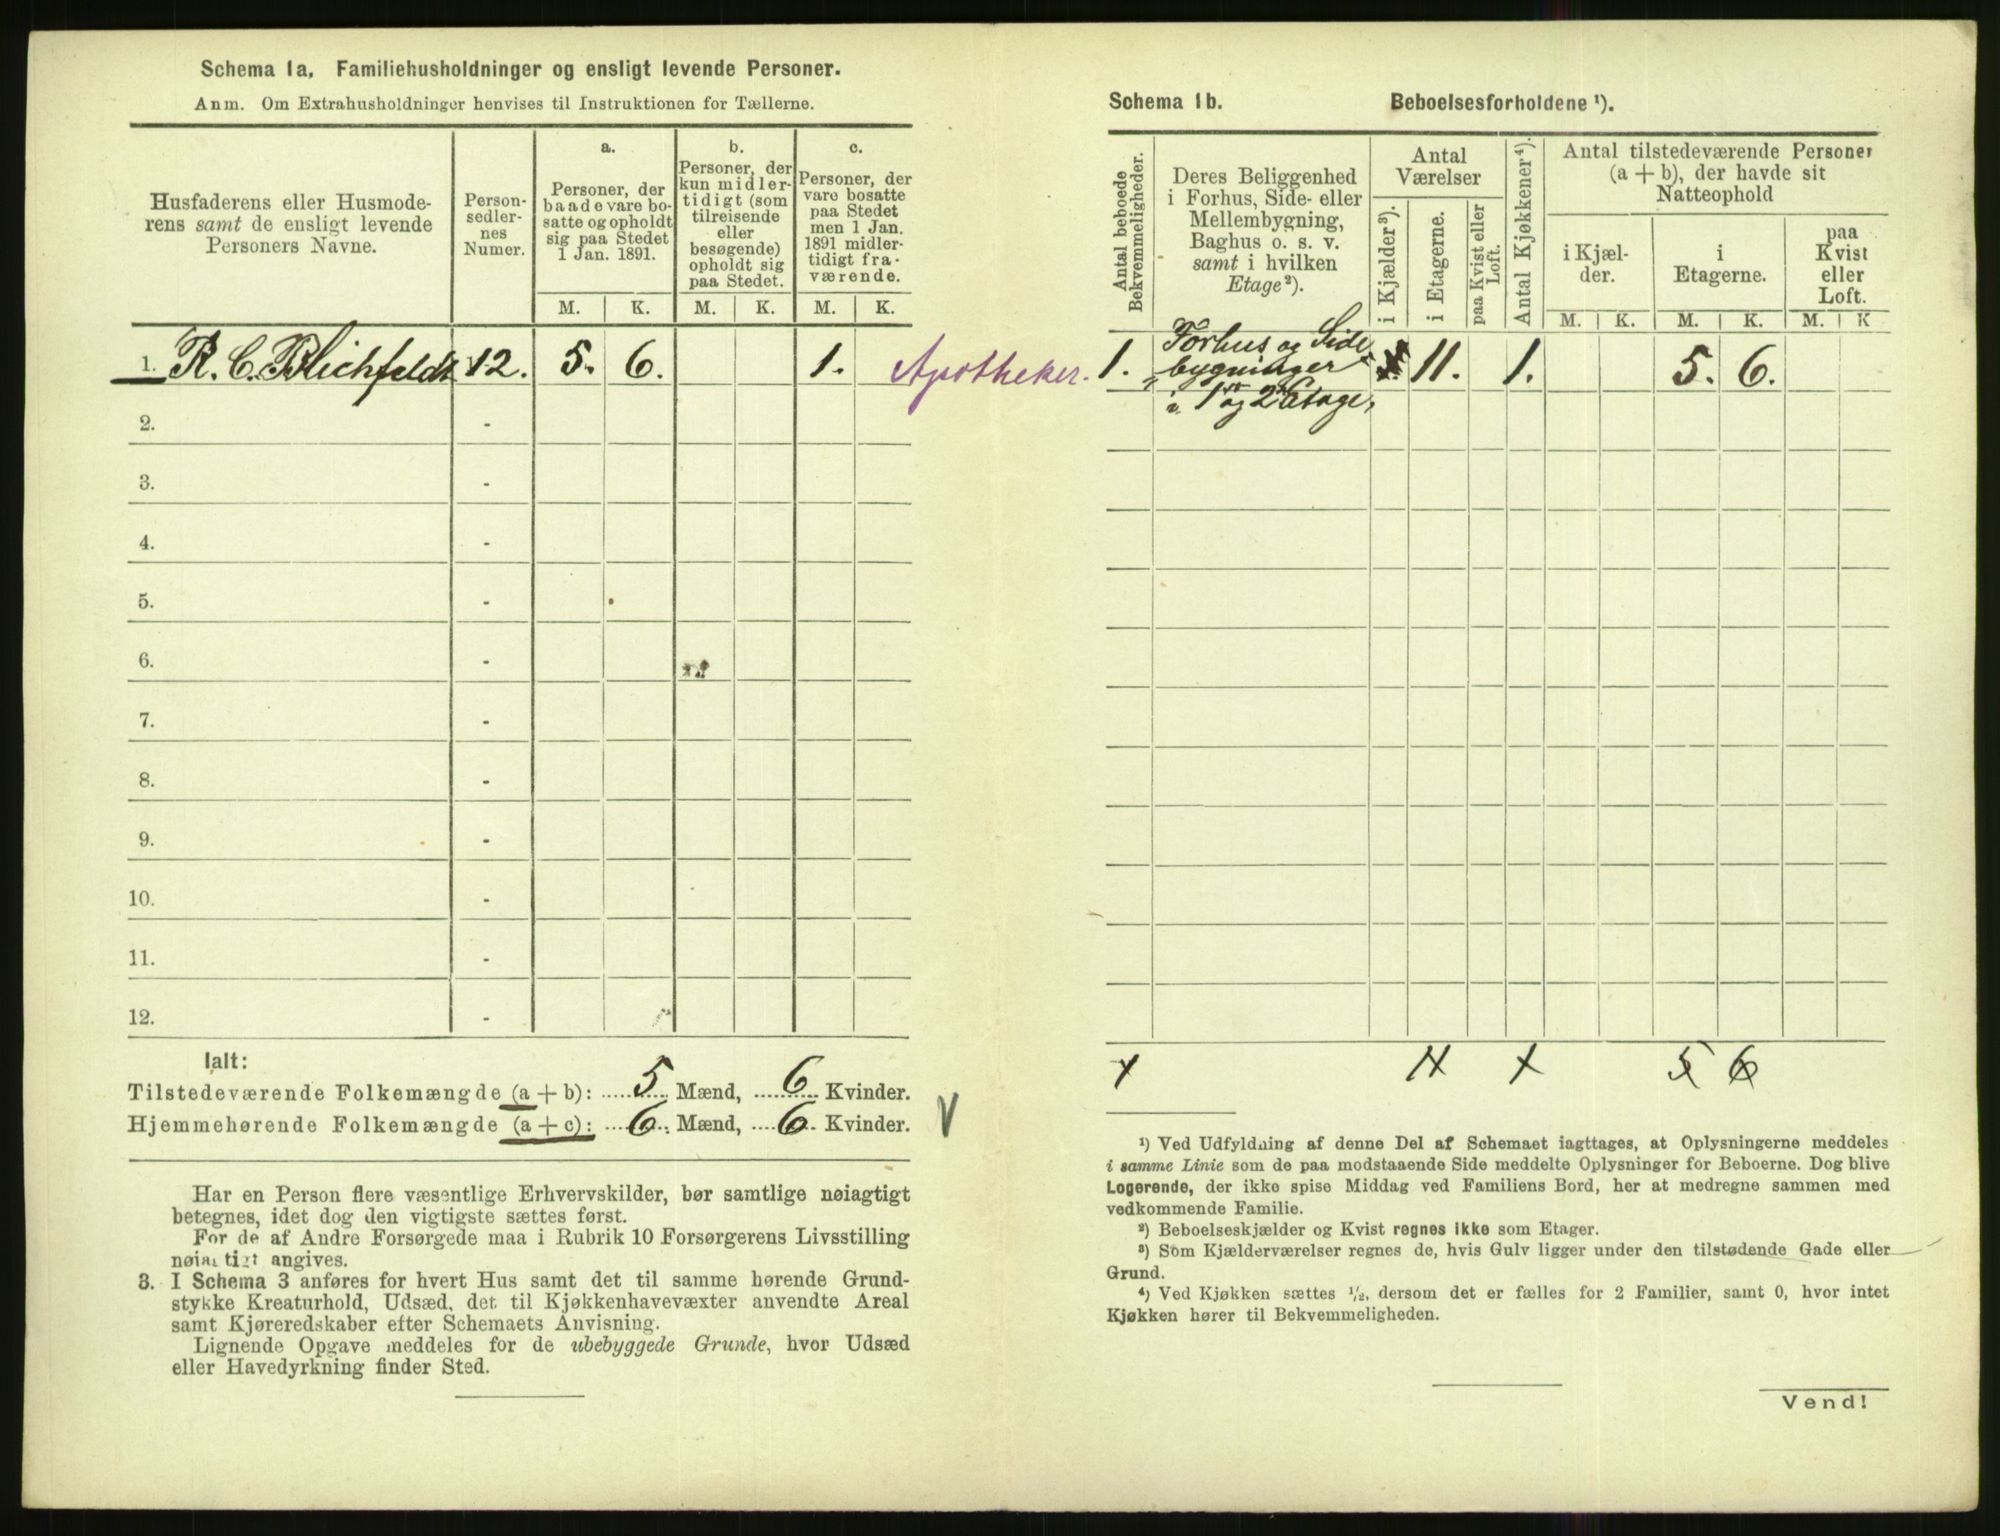 Schema 1a. Familiehusholdninger og ensligt levende Personer.
Anm. Om Extrahusholdninger henvises til Instruktionen for Tællerne.
Husfaderens eller Husmode-
rens samt de ensligt levende
Personers Navne.
Person-
sedler-
nes
Numer.
a.
Personer, der
baade vare bo-
satte og opholdt
sig paa Stedet
1 Jan. 1891.
b.
Personer, der
kun midler-
tidigt (som
tilreisende
eller
besøgende)
opholdt sig
paa Stedet.
c.
Personer, der
vare bosatte
paa Stedet
men 1 Jan.
1891 midler-
tidigt fra-
værende.
M. K. M. K. M. K.
1. R. C. Blichfeldt 12. 5. 6. 1. Apotheker.
2. -
3. -
4. -
5. -
6. -
7. -
8. -
9. -
10. -
11. -
12. -
Ialt:
Tilstedeværende Folkemængde (a + b): 5 Mænd, 6 Kvinder.
Hjemmehørende Folkemængde (a + c): 6 Mænd, 6 Kvinder.
Har en Person flere væsentlige Erhvervskilder, bør samtlige nøiagtigt
betegnes, idet dog den vigtigste sættes først.
For de af Andre Forsørgede maa i Rubrik 10 Forsørgerens Livsstilling
nøiagtigt angives.
3. I Schema 3 anføres for hvert Hus samt det til samme hørende Grund-
stykke Kreaturhold, Udsæd, det til Kjøkkenhavevæxter anvendte Areal
samt Kjøreredskaber efter Schemaets Anvisning.
Lignende Opgave meddeles for de ubebyggede Grunde, hvor Udsæd
eller Havedyrkning finder Sted.
Schema 1b. Beboelsesforholdene ¹).
Antal beboede
Bekvemmeligheder.
Deres Beliggenhed
i Forhus, Side- eller
Mellembygning,
Baghus o. s. v.
samt i hvilken
Etage²).
Antal
Værelser
i Kjælder³).
i Etagerne.
paa Kvist eller
Loft.
Antal Kjøkkener⁴).
Antal tilstedeværende Personer
(a + b), der havde sit
Natteophold
i Kjæl-
der.
i
Etagerne.
paa
Kvist
eller
Loft.
M. K. M. K. M. K
1. Forhus og Side 11. 1. 5. 6.
bygninger
i 1ste og 2den Etage.
1 11 1 5 6
¹) Ved Udfyldning af denne Del af Schemaet iagttages, at Oplysningerne meddeles
i samme Linie som de paa modstaaende Side meddelte Oplysninger for Beboerne. Dog blive
Logerende, der ikke spise Middag ved Familiens Bord, her at medregne sammen med
vedkommende Familie.
²) Beboelseskjælder og Kvist regnes ikke som Etager.
³) Som Kjælderværelser regnes de, hvis Gulv ligger under den tilstødende Gade eller
Grund.
⁴) Ved Kjøkken sættes ½, dersom det er fælles for 2 Familier, samt 0, hvor intet
Kjøkken hører til Bekvemmeligheden.
Vend!